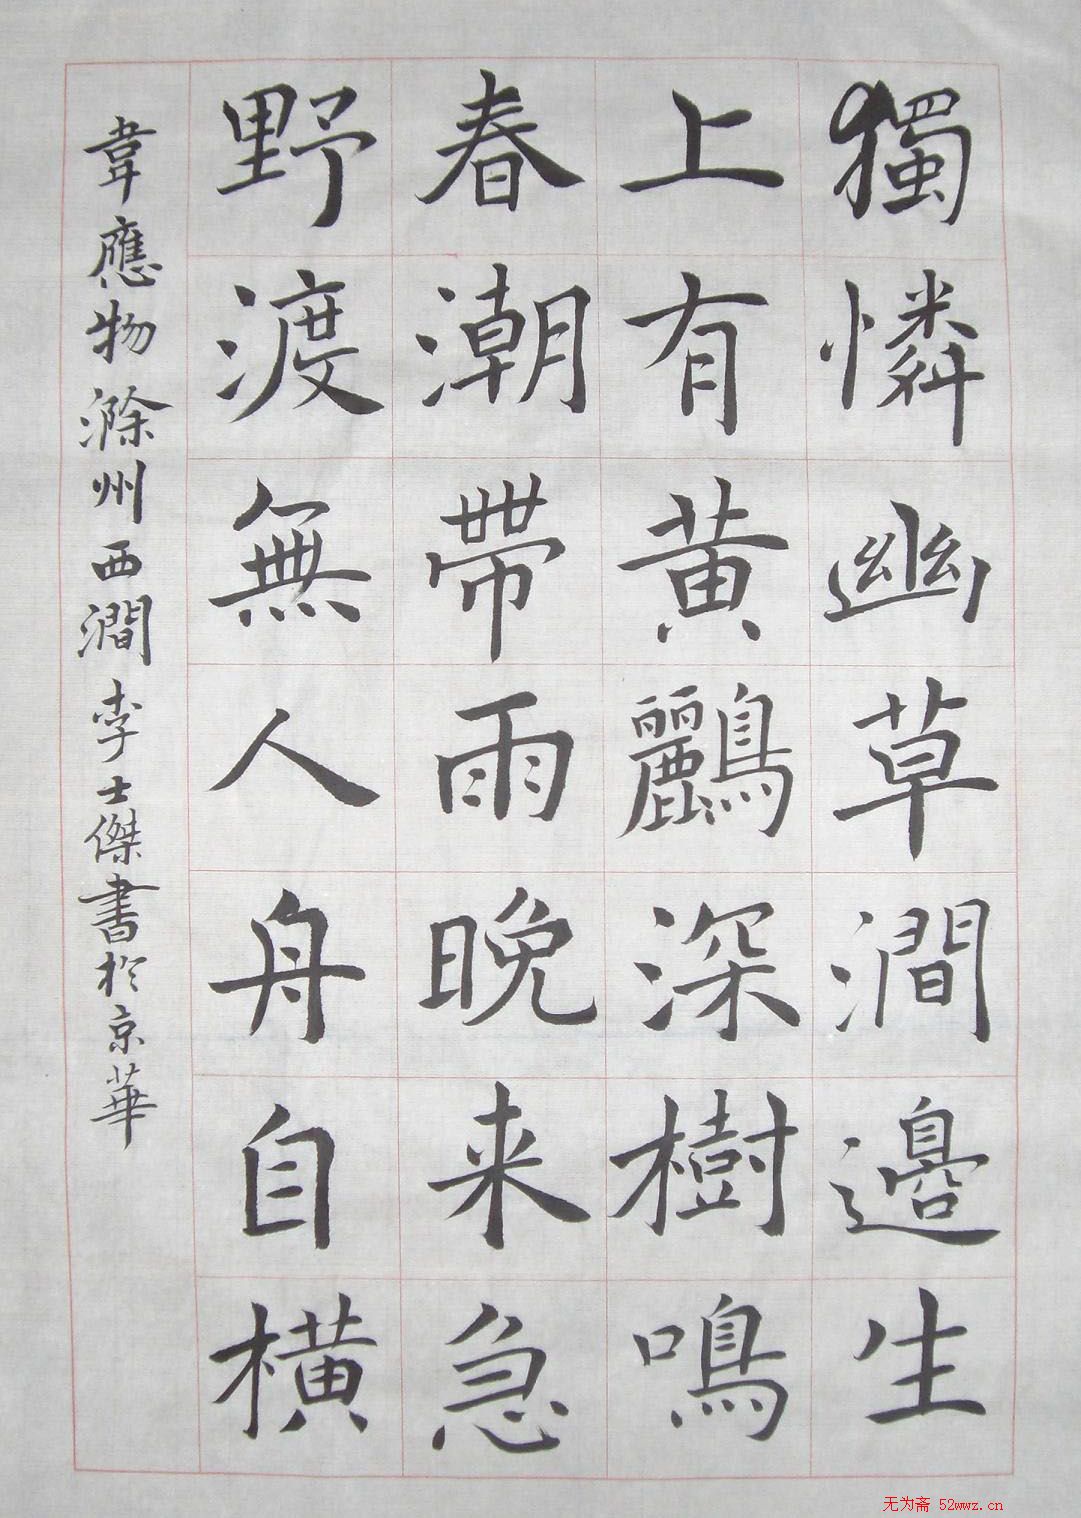 獨憐幽草澗邊生
上有黃鸝深樹鳴
春潮帶雨晚来急
野渡無人舟自橫
韋應物滁州西澗李士傑書於京華
无为斋 52wwz.cn